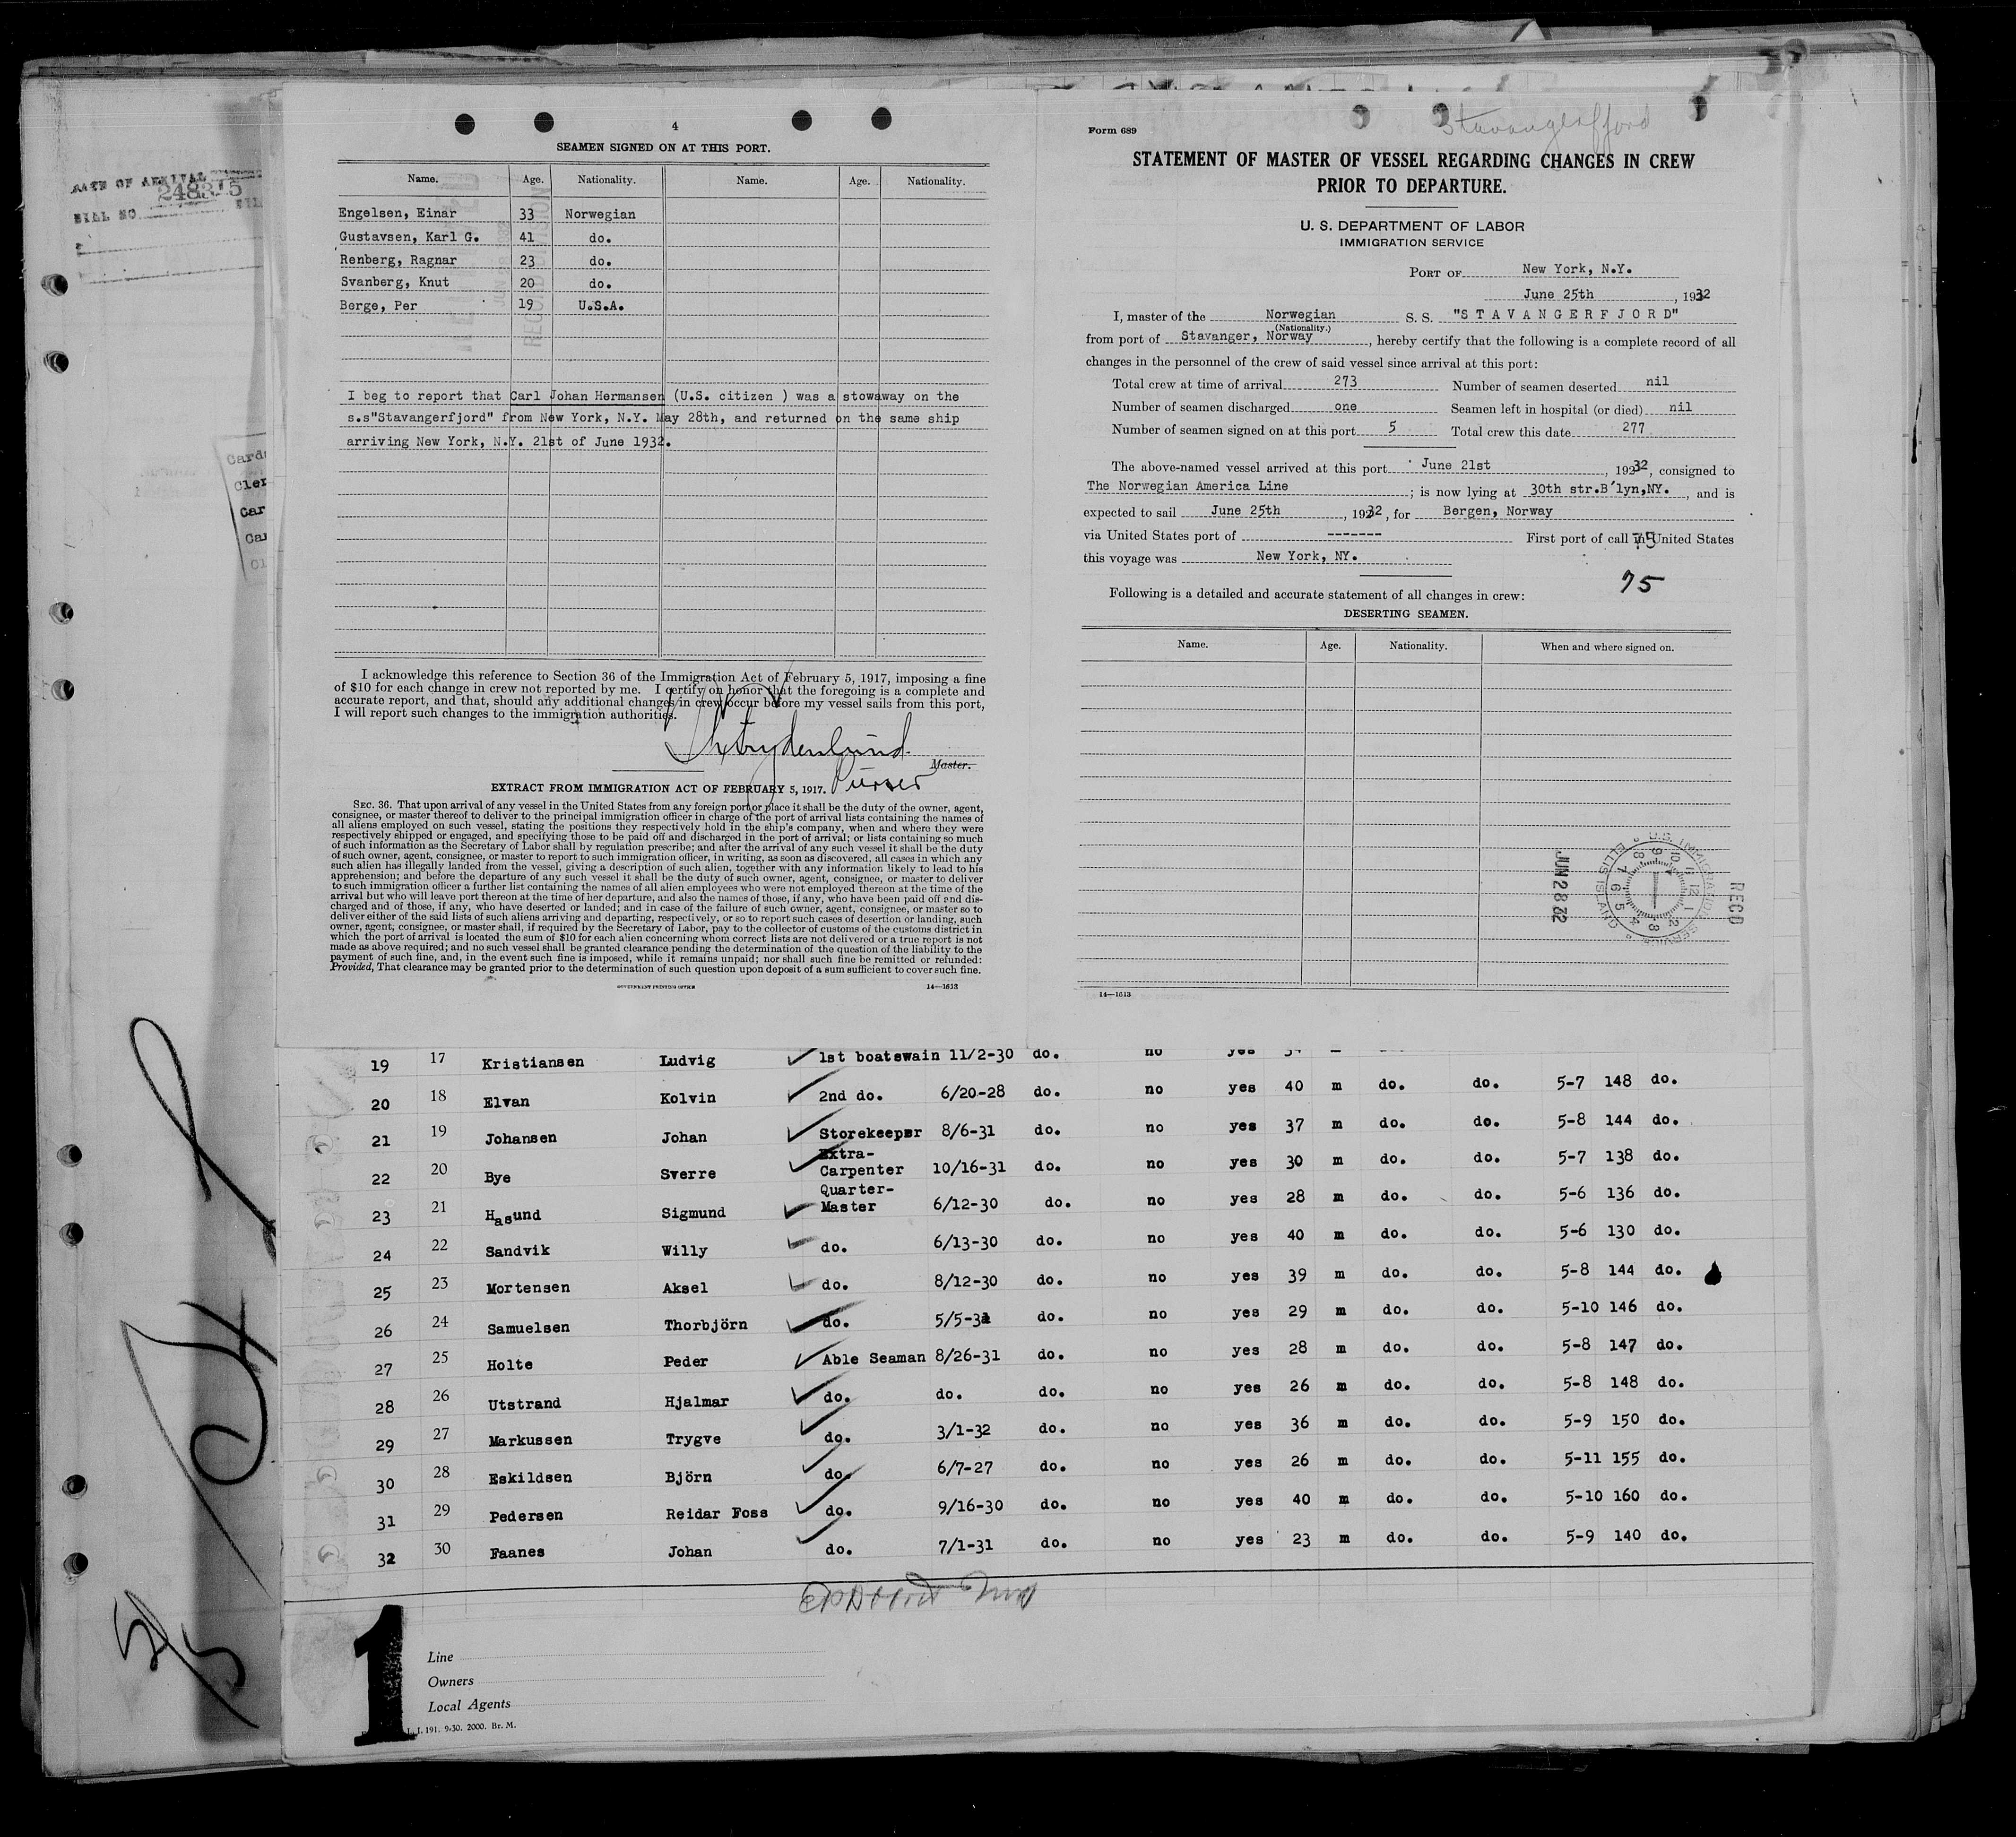 DATE OF ARRIVAL
248315
BILL NO
Card
Cler
Car
Car
Cl
4
SEAMEN SIGNED ON AT THIS PORT.
Name. Age. Nationality. Name. Age. Nationality.
Engelsen, Einar 33 Norwegian
Gustavsen, Karl G. 41 do.
Renberg, Ragnar 23 do.
Svanberg, Knut 20 do.
Berge, Per 19 U.S.A.
I beg to report that Carl Johan Hermansen (U.S. citizen ) was a stowaway on the
s.s"Stavangerfjord" from New York, N.Y. May 28th, and returned on the same ship
arriving New York, N.Y. 21st of June 1932.
I acknowledge this reference to Section 36 of the Immigration Act of February 5, 1917, imposing a fine
of $10 for each change in crew not reported by me. I certify on honor that the foregoing is a complete and
accurate report, and that, should any additional changes in crew occur before my vessel sails from this port,
I will report such changes to the immigration authorities.
Master.
Purser
EXTRACT FROM IMMIGRATION ACT OF FEBRUARY 5, 1917.
SEC. 36. That upon arrival of any vessel in the United States from any foreign port or place it shall be the duty of the owner, agent,
consignee, or master thereof to deliver to the principal immigration officer in charge of the port of arrival lists containing the names of
all aliens employed on such vessel, stating the positions they respectively hold in the ship's company, when and where they were
respectively shipped or engaged, and specifying those to be paid off and discharged in the port of arrival; or lists containing so much
of such information as the Secretary of Labor shall by regulation prescribe; and after the arrival of any such vessel it shall be the duty
of such owner, agent, consignee, or master to report to such immigration officer, in writing, as soon as discovered, all cases in which any
such alien has illegally landed from the vessel, giving a description of such alien, together with any information likely to lead to his
apprehension; and before the departure of any such vessel it shall be the duty of such owner, agent, consignee, or master to deliver
to such immigration officer a further list containing the names of all alien employees who were not employed thereon at the time of the
arrival but who will leave port thereon at the time of her departure, and also the names of those, if any, who have been paid off and dis-
charged and of those, if any, who have deserted or landed; and in case of the failure of such owner, agent, consignee, or master so to
deliver either of the said lists of such aliens arriving and departing, respectively, or so to report such cases of desertion or landing, such
owner, agent, consignee, or master shall, if required by the Secretary of Labor, pay to the collector of customs of the customs district in
which the port of arrival is located the sum of $10 for each alien concerning whom correct lists are not delivered or a true report is not
made as above required; and no such vessel shall be granted clearance pending the determination of the question of the liability to the
payment of such fine, and, in the event such fine is imposed, while it remains unpaid; nor shall such fine be remitted or refunded:
Provided, That clearance may be granted prior to the determination of such question upon deposit of a sum sufficient to cover such fine.
GOVERNMENT PRINTING OFFICE 14—1613
Stavangerfjord
Form 689
STATEMENT OF MASTER OF VESSEL REGARDING CHANGES IN CREW
PRIOR TO DEPARTURE.
U. S. DEPARTMENT OF LABOR
IMMIGRATION SERVICE
PORT OF New York, N.Y.
June 25th, 1932
I, master of the Norwegian S. S. "S T A V A N G E R F J O R D"
(Nationality.)
from port of Stavanger, Norway, hereby certify that the following is a complete record of all
changes in the personnel of the crew of said vessel since arrival at this port:
Total crew at time of arrival 273 Number of seamen deserted nil
Number of seamen discharged one Seamen left in hospital (or died) nil
Number of seamen signed on at this port 5 Total crew this date 277
The above-named vessel arrived at this port June 21st, 1932, consigned to
The Norwegian America Line; is now lying at 30th str.B'lyn,NY., and is
expected to sail June 25th, 1932, for Bergen, Norway
via United States port of ------- First port of call in United States
75
this voyage was New York, NY.
75
Following is a detailed and accurate statement of all changes in crew:
DESERTING SEAMEN.
Name. Age. Nationality. When and where signed on.
RECD
U.S. IMMIGRATION SERVICE
ELLIS ISLAND
JUN 28 32
14—1613
19 17 Kristiansen Ludvig 1st boatswain 11/2-30 do. no yes
20 18 Elvan Kolvin 2nd do. 6/20-28 do. no yes 40 m do. do. 5-7 148 do.
21 19 Johansen Johan Storekeeper 8/6-31 do. no yes 37 m do. do. 5-8 144 do.
22 20 Bye Sverre Extra-Carpenter 10/16-31 do. no yes 30 m do. do. 5-7 138 do.
23 21 Hasund Sigmund Quarter-Master 6/12-30 do. no yes 28 m do. do. 5-6 136 do.
24 22 Sandvik Willy do. 6/13-30 do. no yes 40 m do. do. 5-6 130 do.
25 23 Mortensen Aksel do. 8/12-30 do. no yes 39 m do. do. 5-8 144 do.
26 24 Samuelsen Thorbjörn do. 5/5-31 do. no yes 29 m do. do. 5-10 146 do.
27 25 Holte Peder Able Seaman 8/26-31 do. no yes 28 m do. do. 5-8 147 do.
28 26 Utstrand Hjalmar do. do. do. no yes 26 m do. do. 5-8 148 do.
29 27 Markussen Trygve do. 3/1-32 do. no yes 36 m do. do. 5-9 150 do.
30 28 Eskildsen Björn do. 6/7-27 do. no yes 26 m do. do. 5-11 155 do.
31 29 Pedersen Reidar Foss do. 9/16-30 do. no yes 40 m do. do. 5-10 160 do.
32 30 Faanes Johan do. 7/1-31 do. no yes 23 m do. do. 5-9 140 do.
1
Line
Owners
Local Agents
I. 191. 9-30. 2000. Br. M.